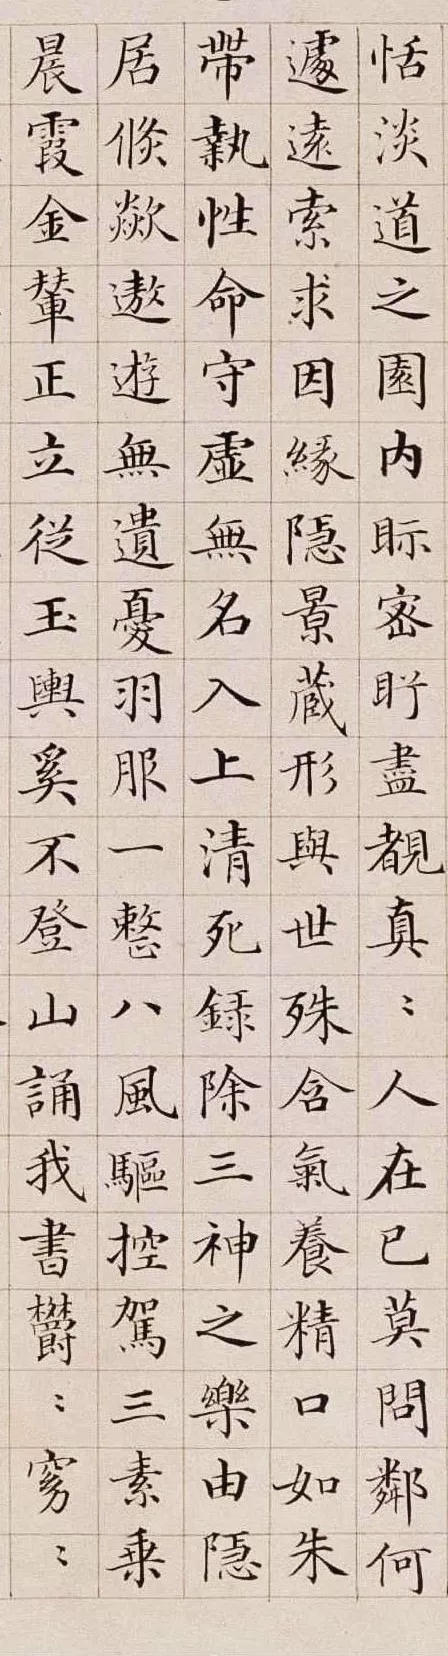 恬淡道之園内眎密盻盡覩真〻人在已莫問鄰何
遽遠索求因緣隠景藏形與世殊含氣養精口如朱
帶執性命守虛無名入上清死録除三神之樂由隠
居倐歘遨遊無遺憂羽服一整八風驅控駕三素乗
晨霞金輦正立從玉輿奚不登山誦我書鬱〻窈〻